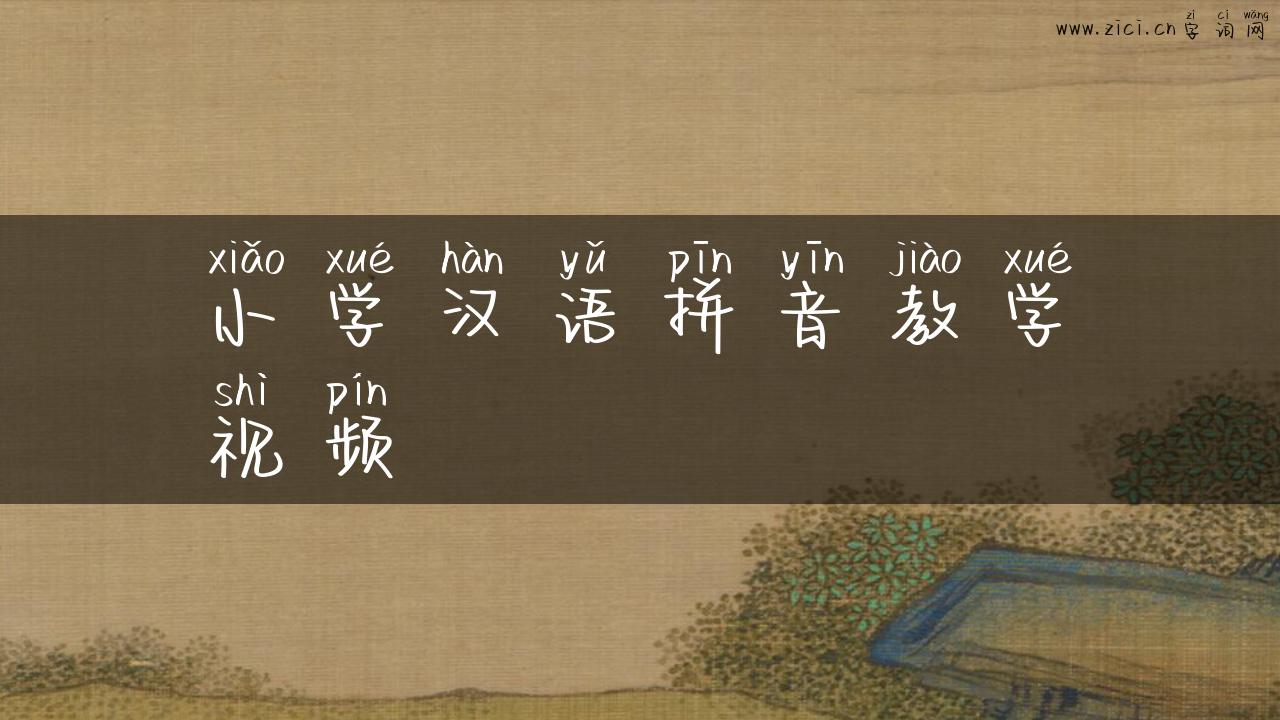 zì cí wǎng
www.zici.cn 字 词 网
xiǎo xué hàn yǔ pīn yīn jiào xué
小 学 汉 语 拼 音 教 学
shì pín
视 频